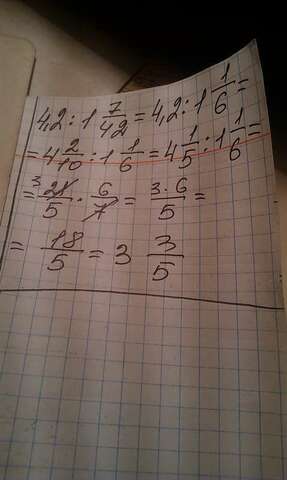 4,2 : 1 7/42 = 4,2 : 1 1/6 =
= 4 2/10 : 1 1/6 = 4 1/5 : 1 1/6 =
= 3 21/5 · 6/7 = 3·6/5 =
= 18/5 = 3 3/5